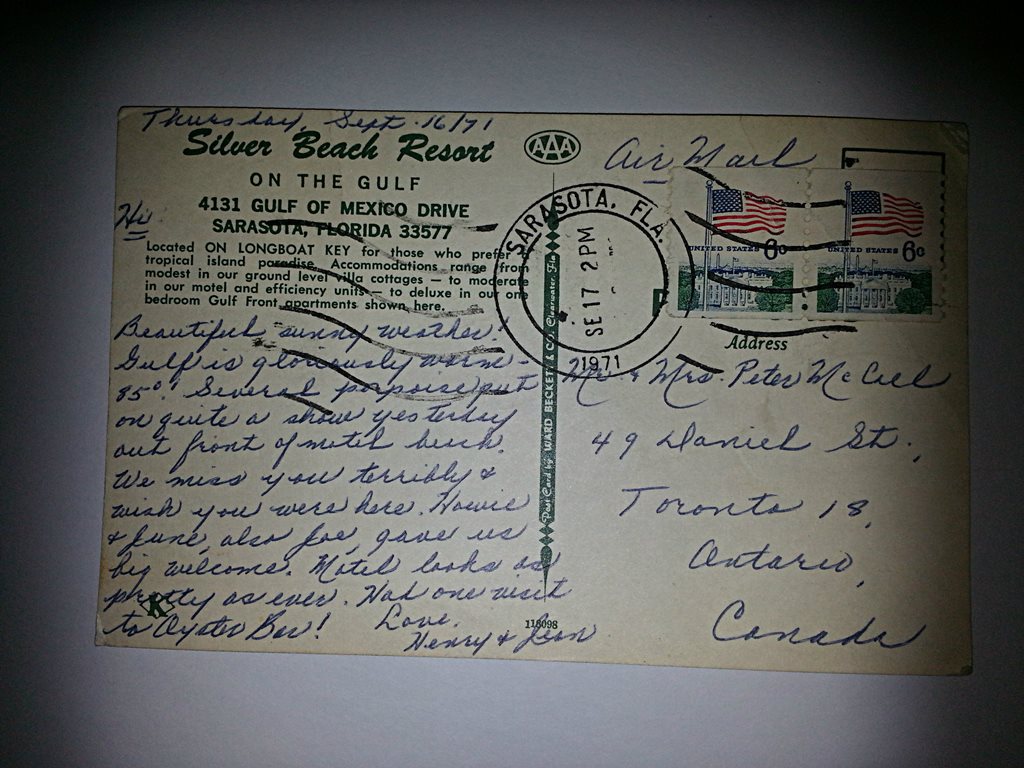 Thursday, Sept. 16/71
Silver Beach Resort
ON THE GULF
4131 GULF OF MEXICO DRIVE
SARASOTA, FLORIDA 33577
Located ON LONGBOAT KEY for those who prefer a
tropical island paradise. Accommodations range from
modest in our ground level villa cottages — to moderate
in our motel and efficiency units — to deluxe in our one
bedroom Gulf Front apartments shown here.
Hi
Beautiful sunny weather!
Gulf is gloriously warm -
85°! Several porpoise put
on quite a show yesterday
out front of motel beach.
We miss you terribly &
wish you were here. Howie
& June, also Joe, gave us
big welcome. Motel looks as
pretty as ever. Had one visit
to Oyster Bar!
Love,
Henry & Jean
K
118098
AAA
Post Card by WARD BECKETT & CO. Clearwater, Fla.
Air Mail
SARASOTA, FLA.
SE 17 2 PM
1971
UNITED STATES 6c
UNITED STATES 6c
Address
Mr. & Mrs. Peter McCall
49 Daniel St.,
Toronto 18,
Ontario,
Canada